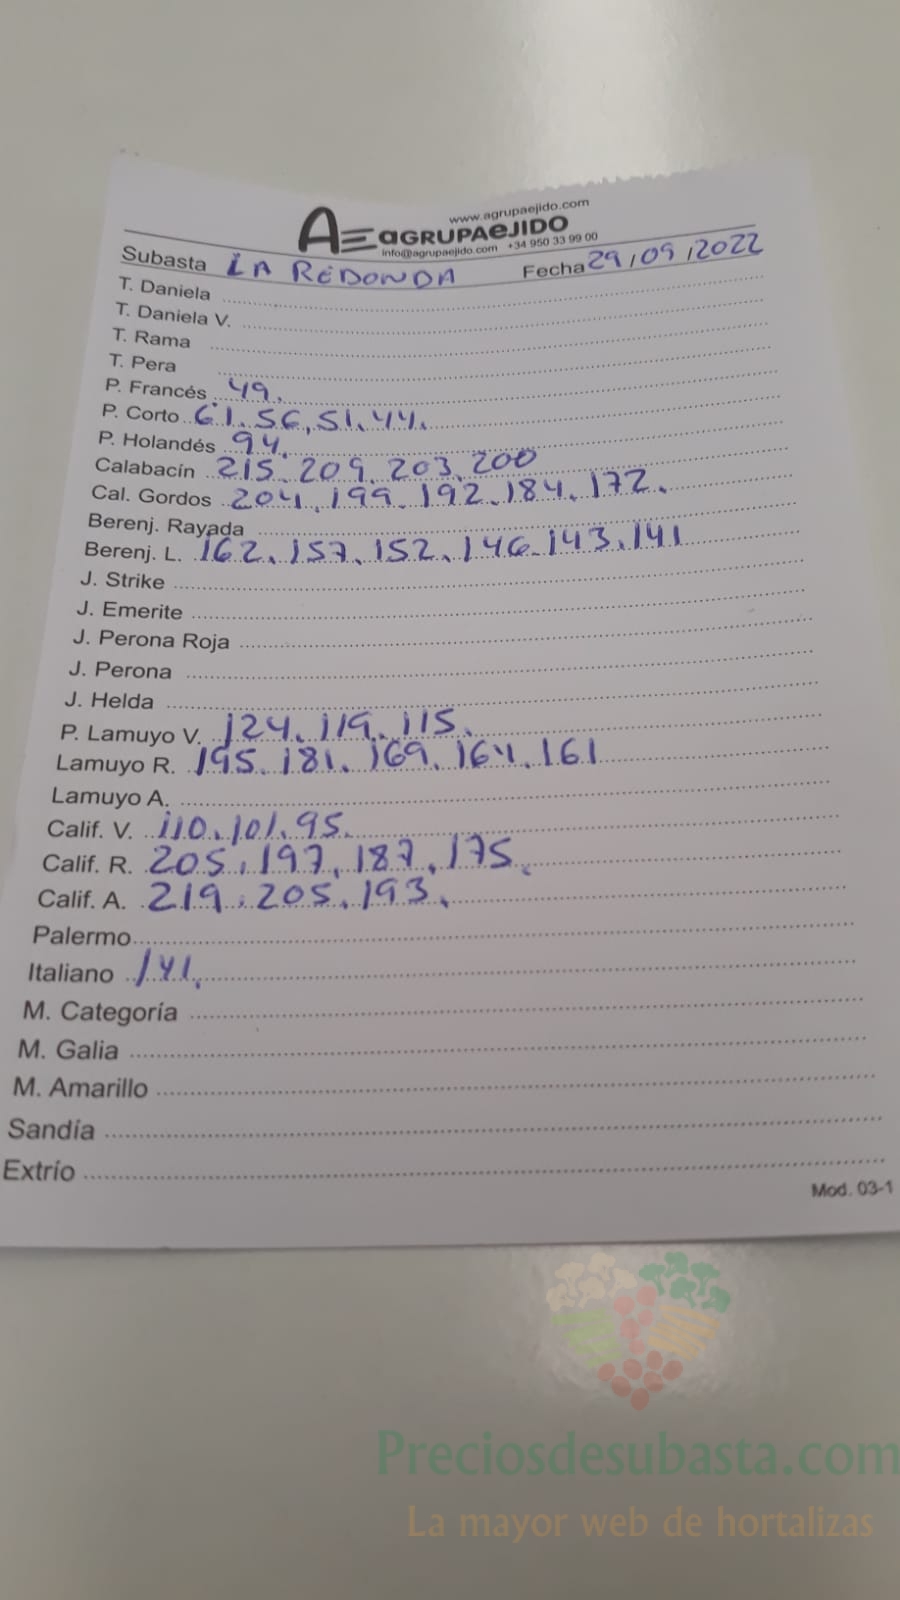 www.agrupaejido.com
AE aGRUPAeJIDO
info@agrupaejido.com +34 950 33 99 00
Subasta LA REDONDA Fecha 29/09/2022
T. Daniela
T. Daniela V.
T. Rama
T. Pera
P. Francés 49.
P. Corto 61.56,51.44.
P. Holandés 94.
Calabacín 215.209.203.200
Cal. Gordos 204.199.192.184.172.
Berenj. Rayada
Berenj. L. 162.157.152.146.143.141
J. Strike
J. Emerite
J. Perona Roja
J. Perona
J. Helda
P. Lamuyo V. 124.119.115.
Lamuyo R. 195.181.169.164.161
Lamuyo A.
Calif. V. 110.101.95.
Calif. R. 205.197.187.175.
Calif. A. 219.205.193.
Palermo
Italiano 141.
M. Categoría
M. Galia
M. Amarillo
Sandía
Extrío
Mod. 03-1
Preciosdesubasta.com
La mayor web de hortalizas